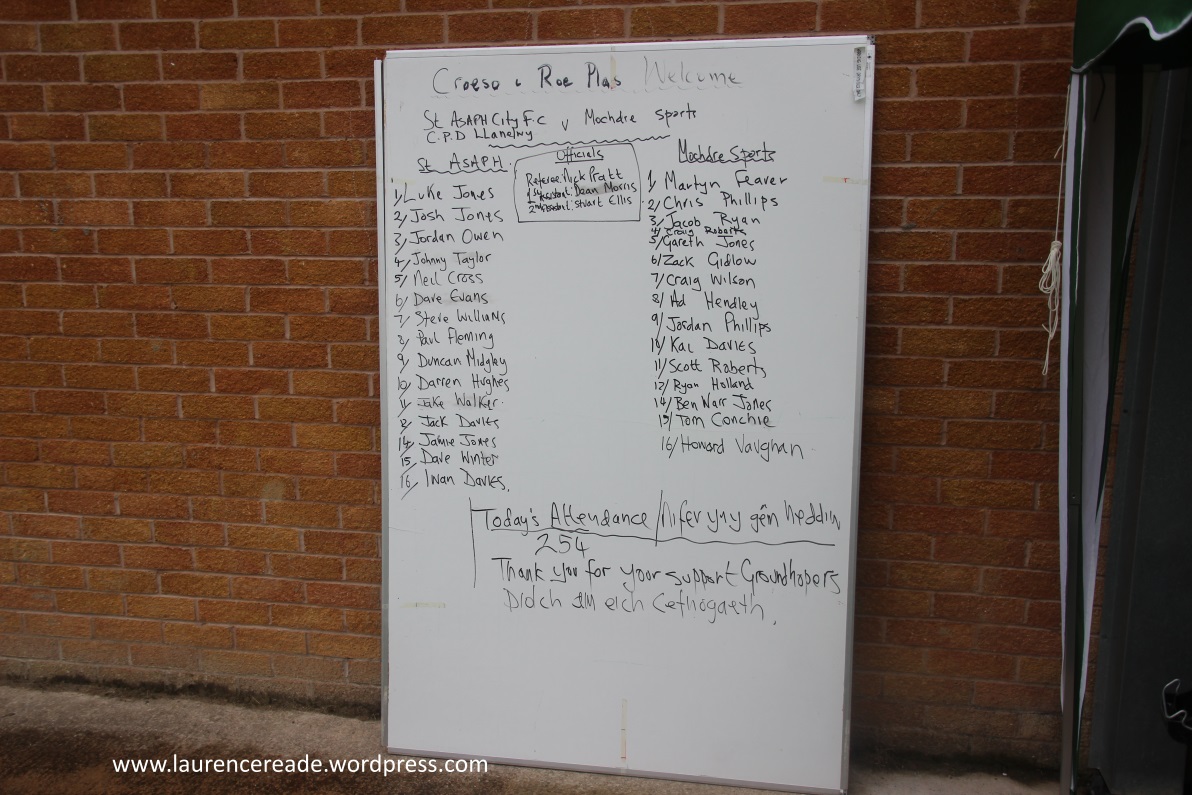 Croeso i Roe Plas / Welcome
St ASAPH City F.C v Mochdre Sports
C.P.D Llanelwy
St ASAPH.
1/ Luke Jones
2/ Josh Jones
3/ Jordan Owen
4/ Johnny Taylor
5/ Neil Cross
6/ Dave Evans
7/ Steve Williams
8/ Paul Fleming
9/ Duncan Midgley
10/ Darren Hughes
11/ Jake Walker.
2/ Jack Davies
14/ Jamie Jones
15 Dave Winter
16/ Iwan Davies.
Officials
Referee: Nick Pratt
1st Assistant: Dean Morris
2nd Assistant: Stuart Ellis
Mochdre Sports
1/ Martyn Feaver
2/ Chris Phillips
3/ Jacob Ryan
4/ Craig Roberts
5/ Gareth Jones
6/ Zack Gidlow
7/ Craig Wilson
8/ Ad Hendley
9/ Jordan Phillips
10/ Kai Davies
11/ Scott Roberts
12/ Ryan Holland
14/ Ben Warr Jones
15/ Tom Conchie
16/ Howard Vaughan
Today's Attendance / Nifer yny gêm heddiw
254
Thank you for your support Groundhopers
Diolch am eich Cefnogaeth.
www.laurencereade.wordpress.com